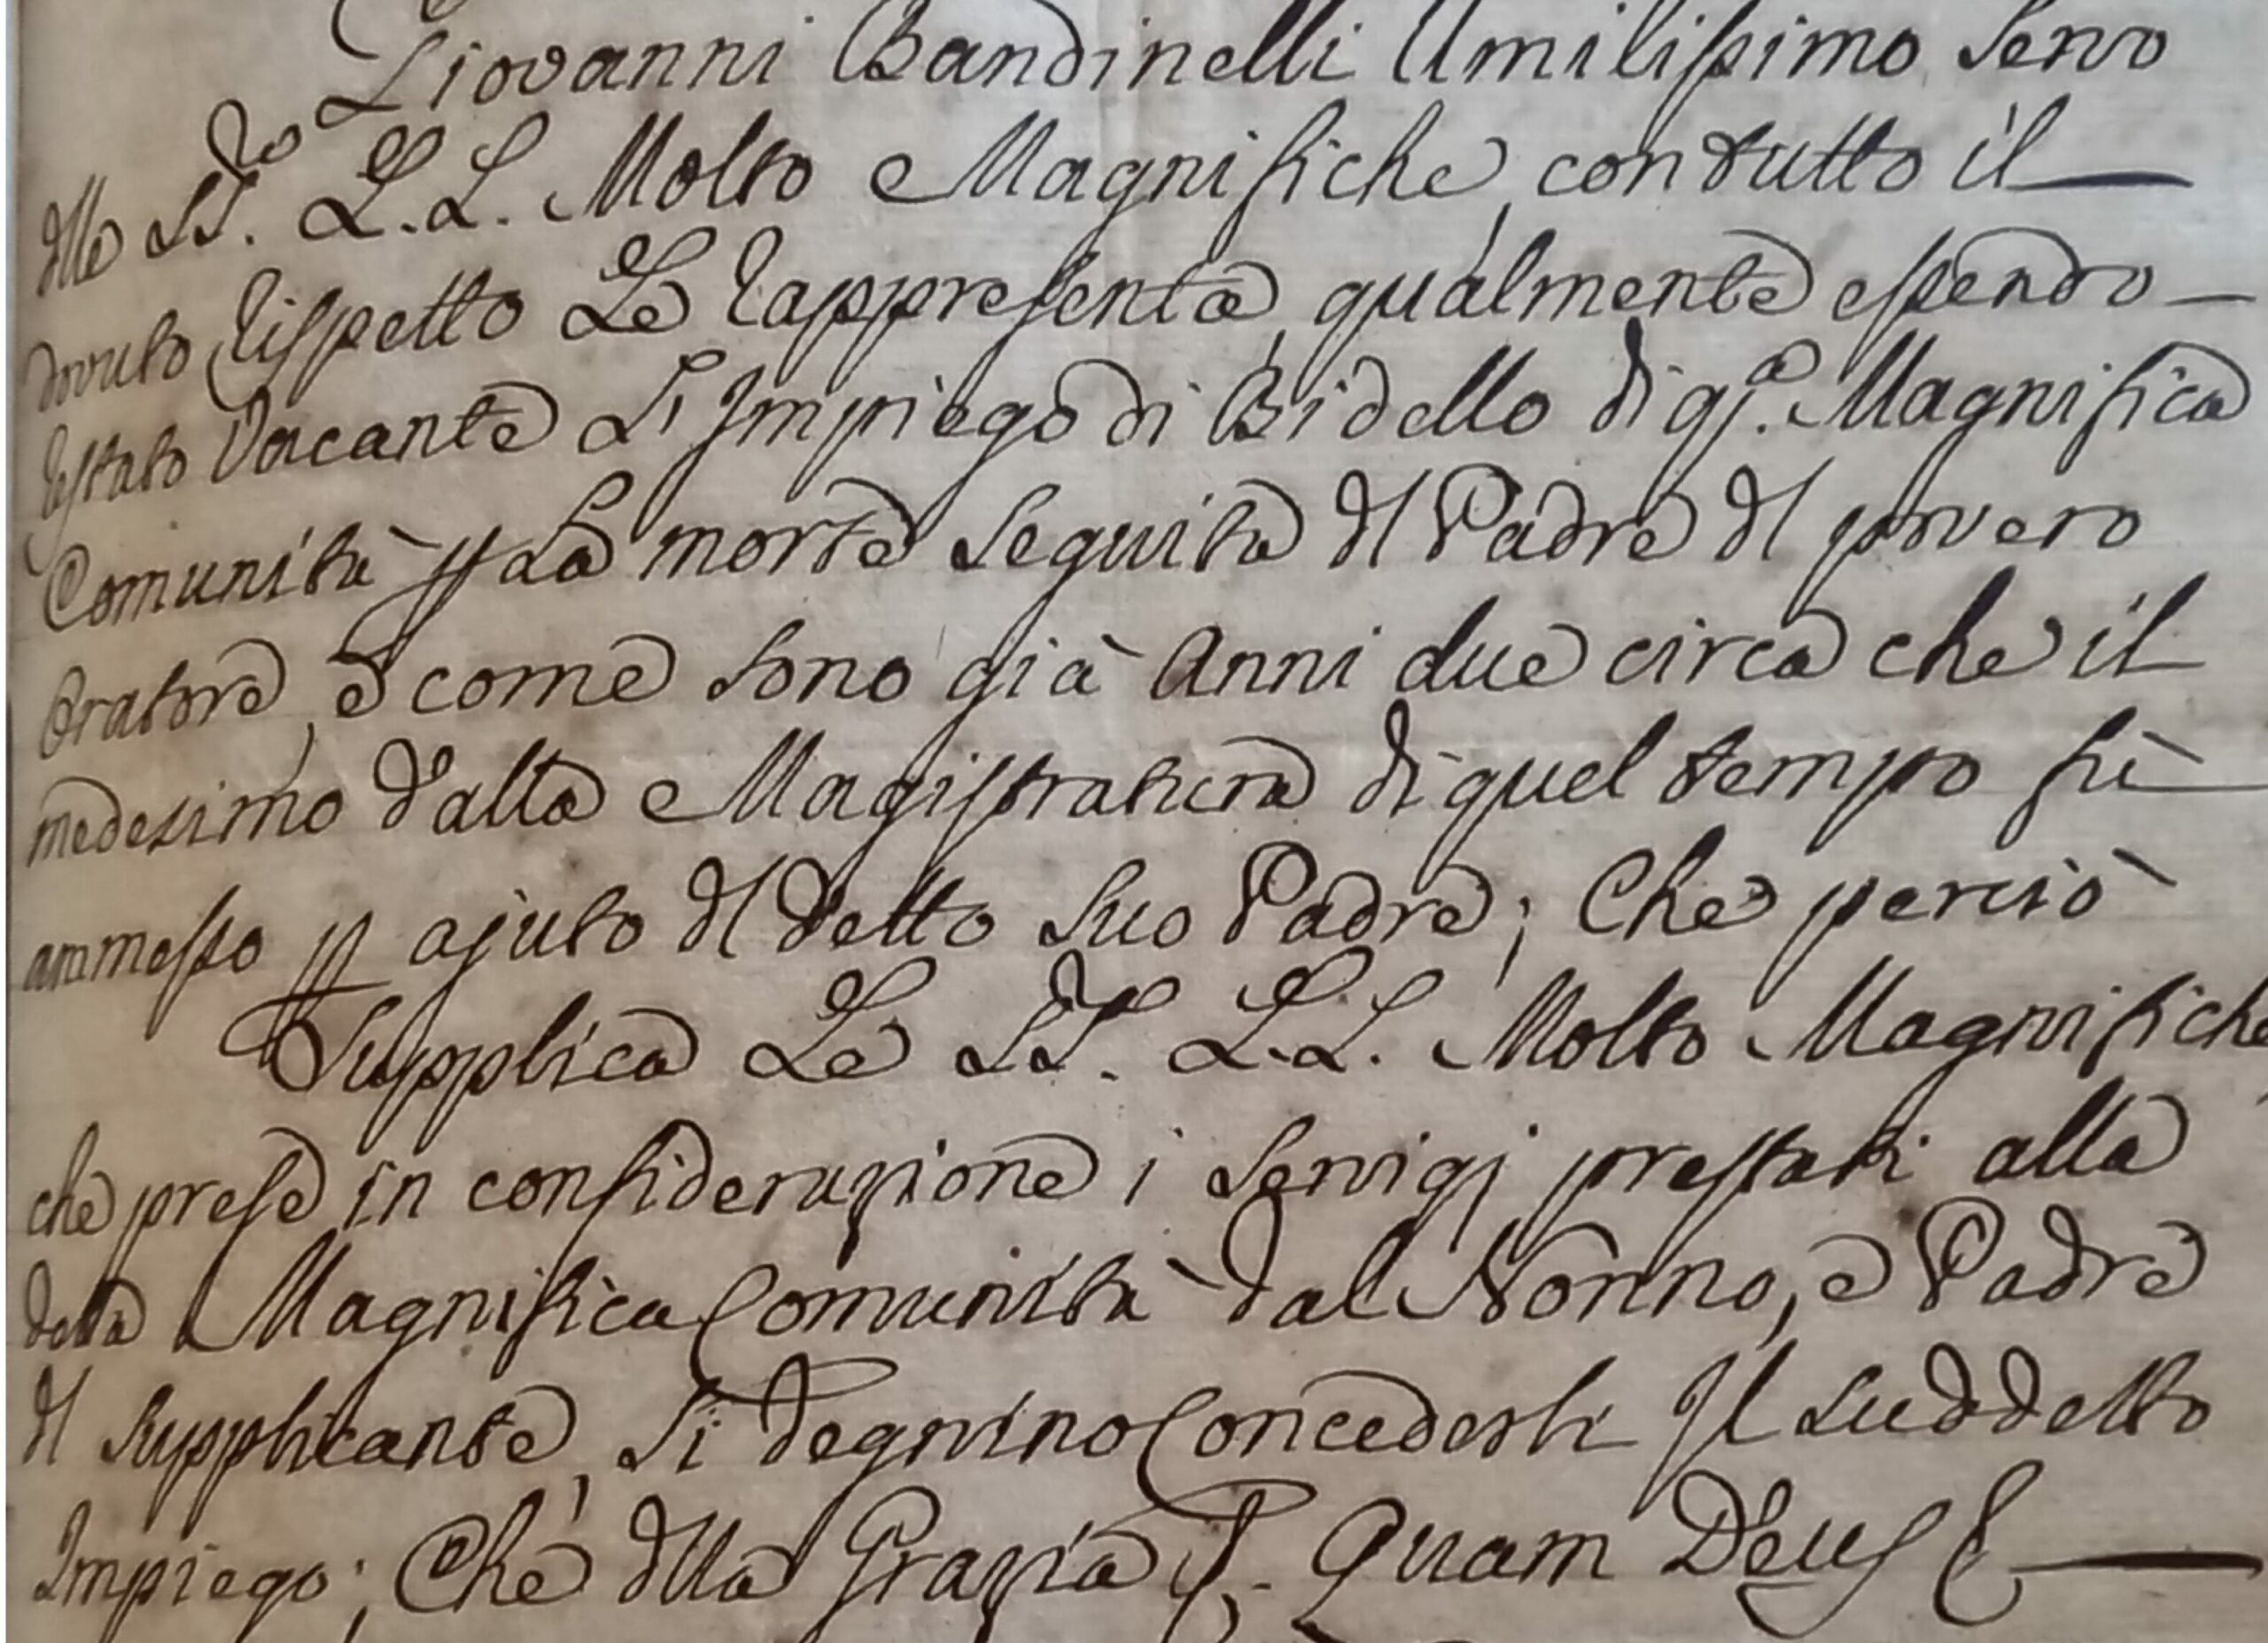 Giovanni Bandinelli Umilissimo Servo
dlle SS.  L.L. Molto Magnifiche, con tutto il
dovuto Rispetto Le Rappresenta, qualmente essendo
restato Vacante L'Impiego di Bidello di qṡta. Magnifica
Comunità p La morte Seguita dl Padre dl povero
Oratore, e come sono già Anni due circa che il
medesimo dalla Magistratura di quel tempo fù
ammesso p ajuto dl detto suo Padre; Che perciò
Supplica Le SS. L.L. Molto Magnifiche
che prese in considerazione i Servigj prestati alla
detta Magnifica Comunità dal Nonno, e Padre
dl Supplicante, Si degnino Concederli Il Suddetto
Impiego; Che dlla Grazia &. Quam Deus &